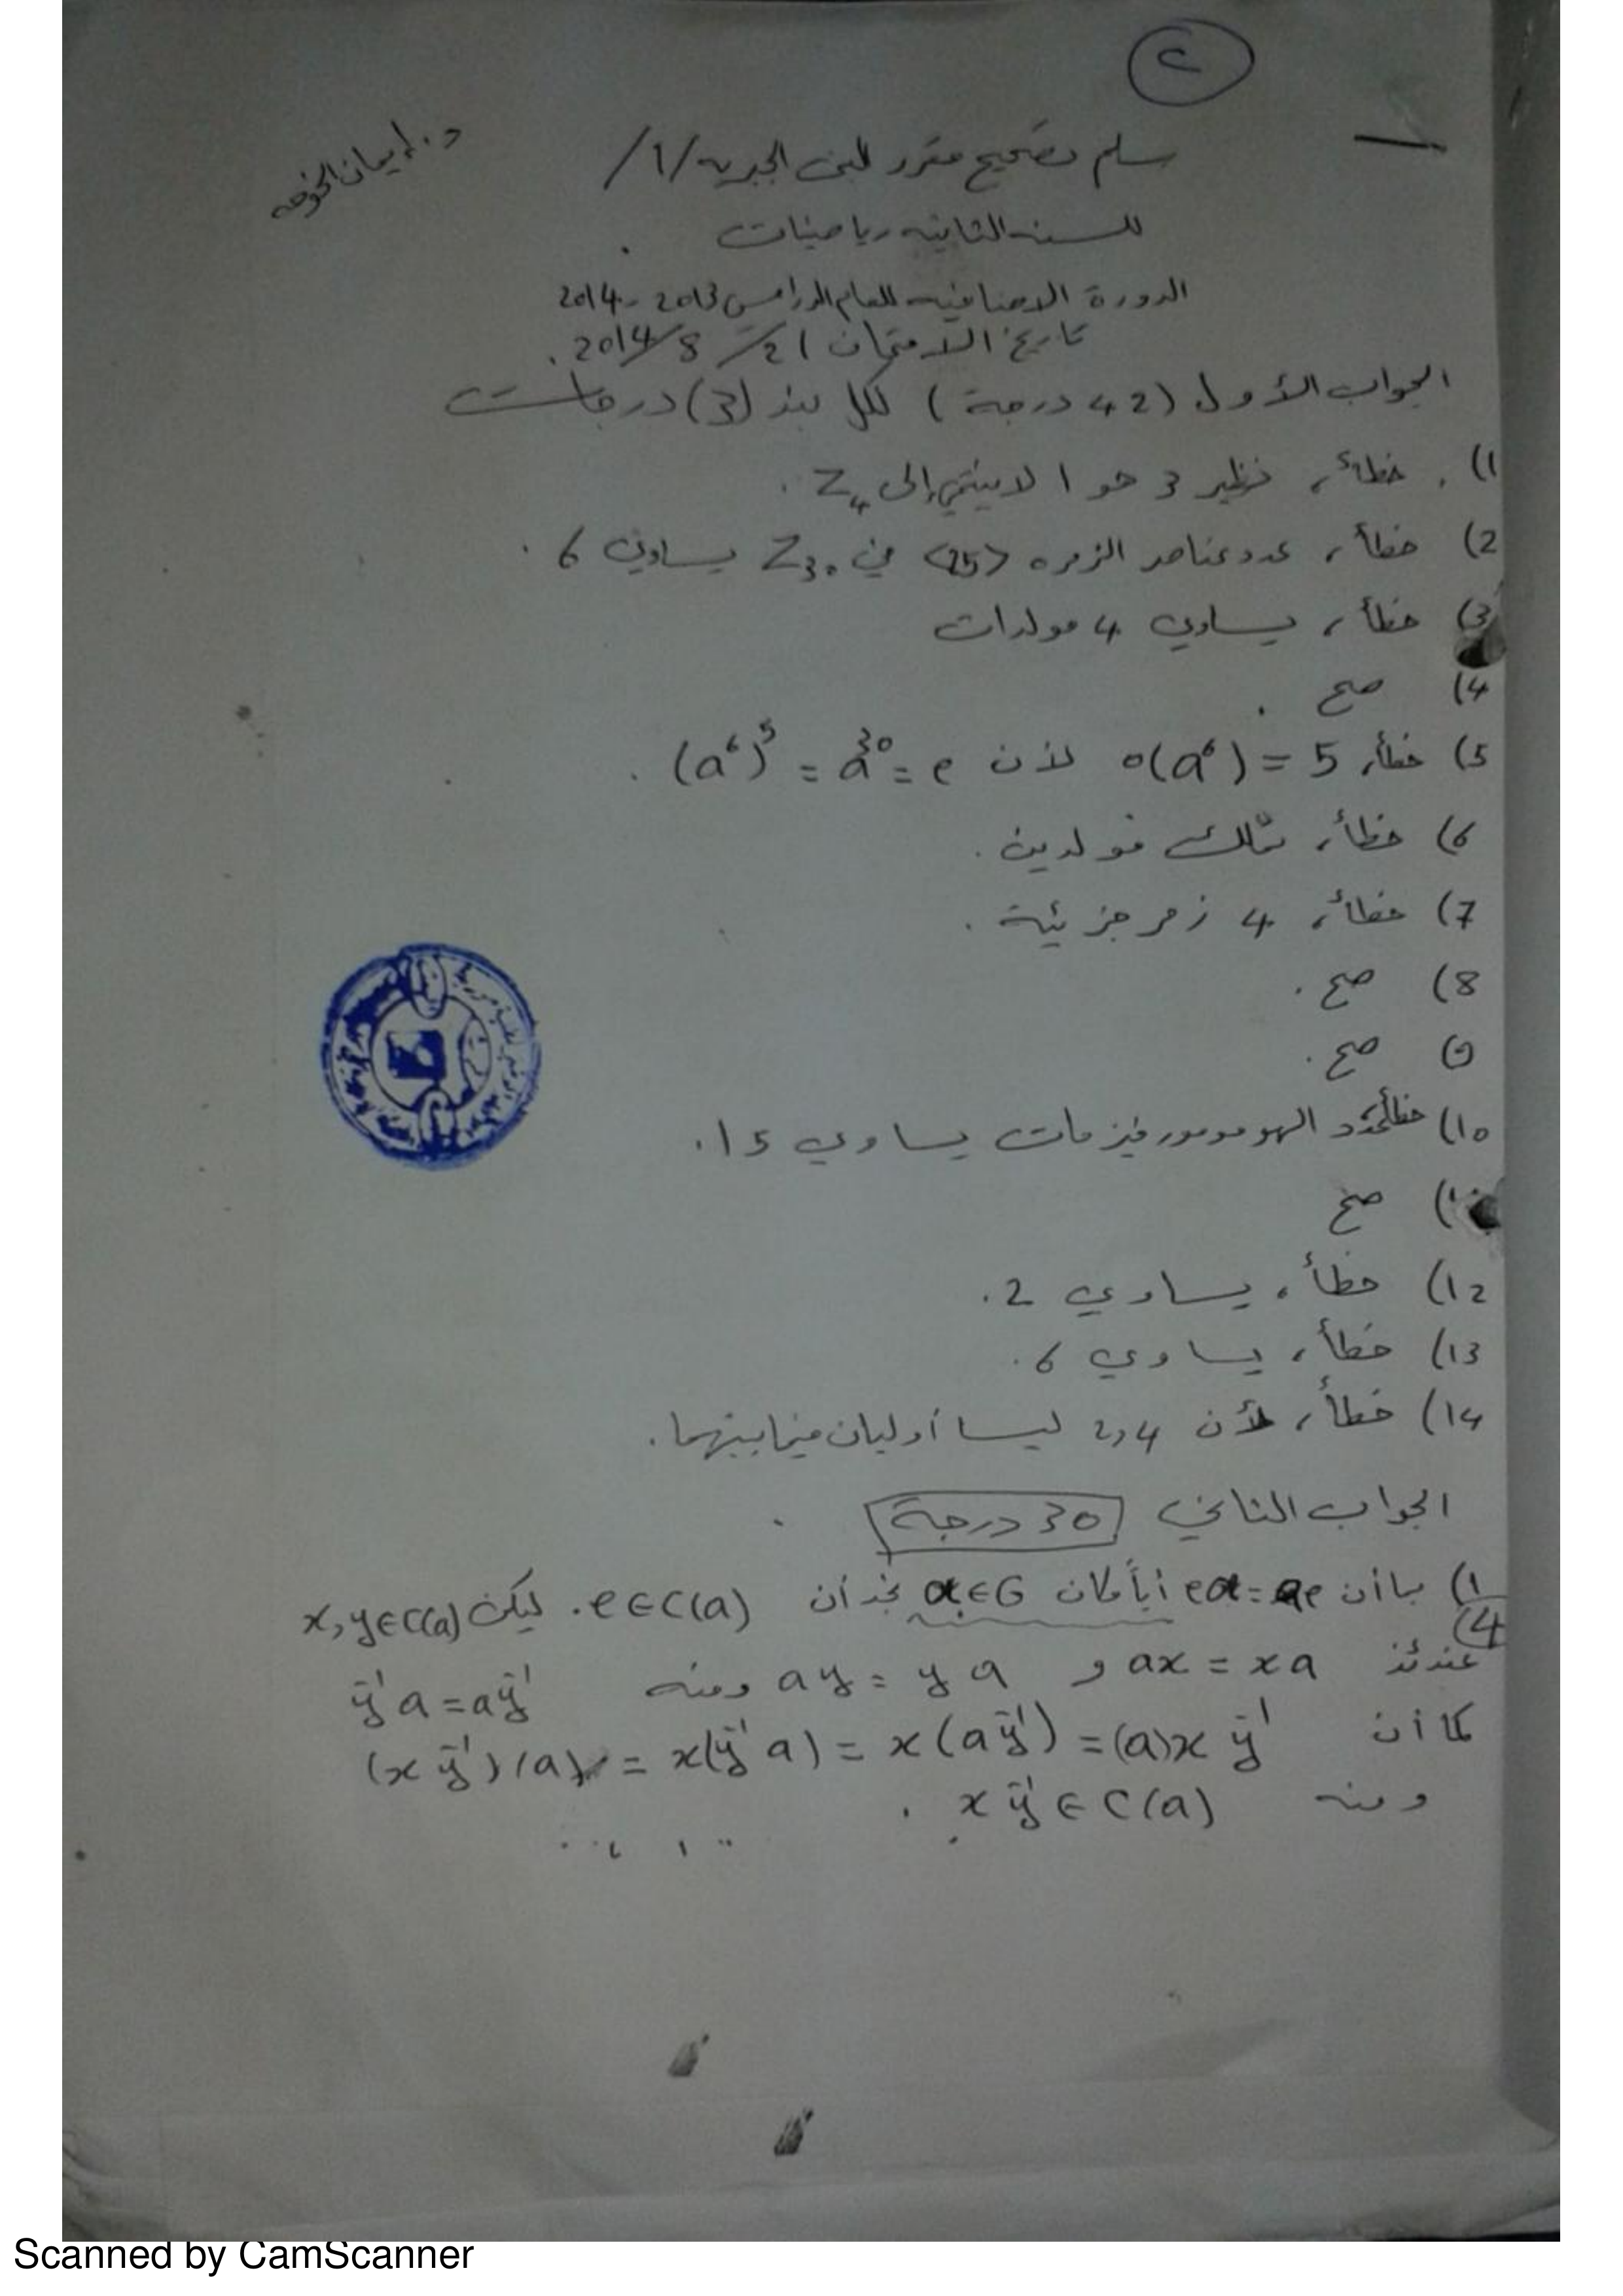 د. إيمان الخوجه
سلم تصحيح مقرر البنى الجبرية /1/
للسنة الثانية رياضيات
الدورة الاضافية للعام الدراسي 2013-2014
تاريخ الامتحان 21/8/2014.
الجواب الأول (42 درجة) لكل بند (3) درجات
1) خطأ، نظير 3 هو 1 لا ينتمي إلى Z₄.
2) خطأ، عدد عناصر الزمرة <25> في Z₃₀ يساوي 6.
3) خطأ، يساوي 4 مولدات
4) صح.
5) خطأ، o(a⁶) = 5 لأن (a⁶)⁵ = a³⁰ = e.
6) خطأ، تملك مولدين.
7) خطأ، 4 زمر جزئية.
8) صح.
9) صح.
10) خطأ، عدد الهومومورفيزمات يساوي 15.
صح
12) خطأ، يساوي 2.
13) خطأ، يساوي 6.
14) خطأ، لأن 2,4 ليسا أوليان فيما بينهما.
الجواب الثاني 30 درجة
1) بما أن ea = ae أياً كان a∈G نجد أن e∈C(a). ليكن x,y∈C(a)
4
عندئذ ax = xa و ay = ya ومنه y⁻¹a = ay⁻¹
كما أن (xy⁻¹)(a) = x(y⁻¹a) = x(ay⁻¹) = (a)xy⁻¹
ومنه xy⁻¹∈C(a).
Scanned by CamScanner